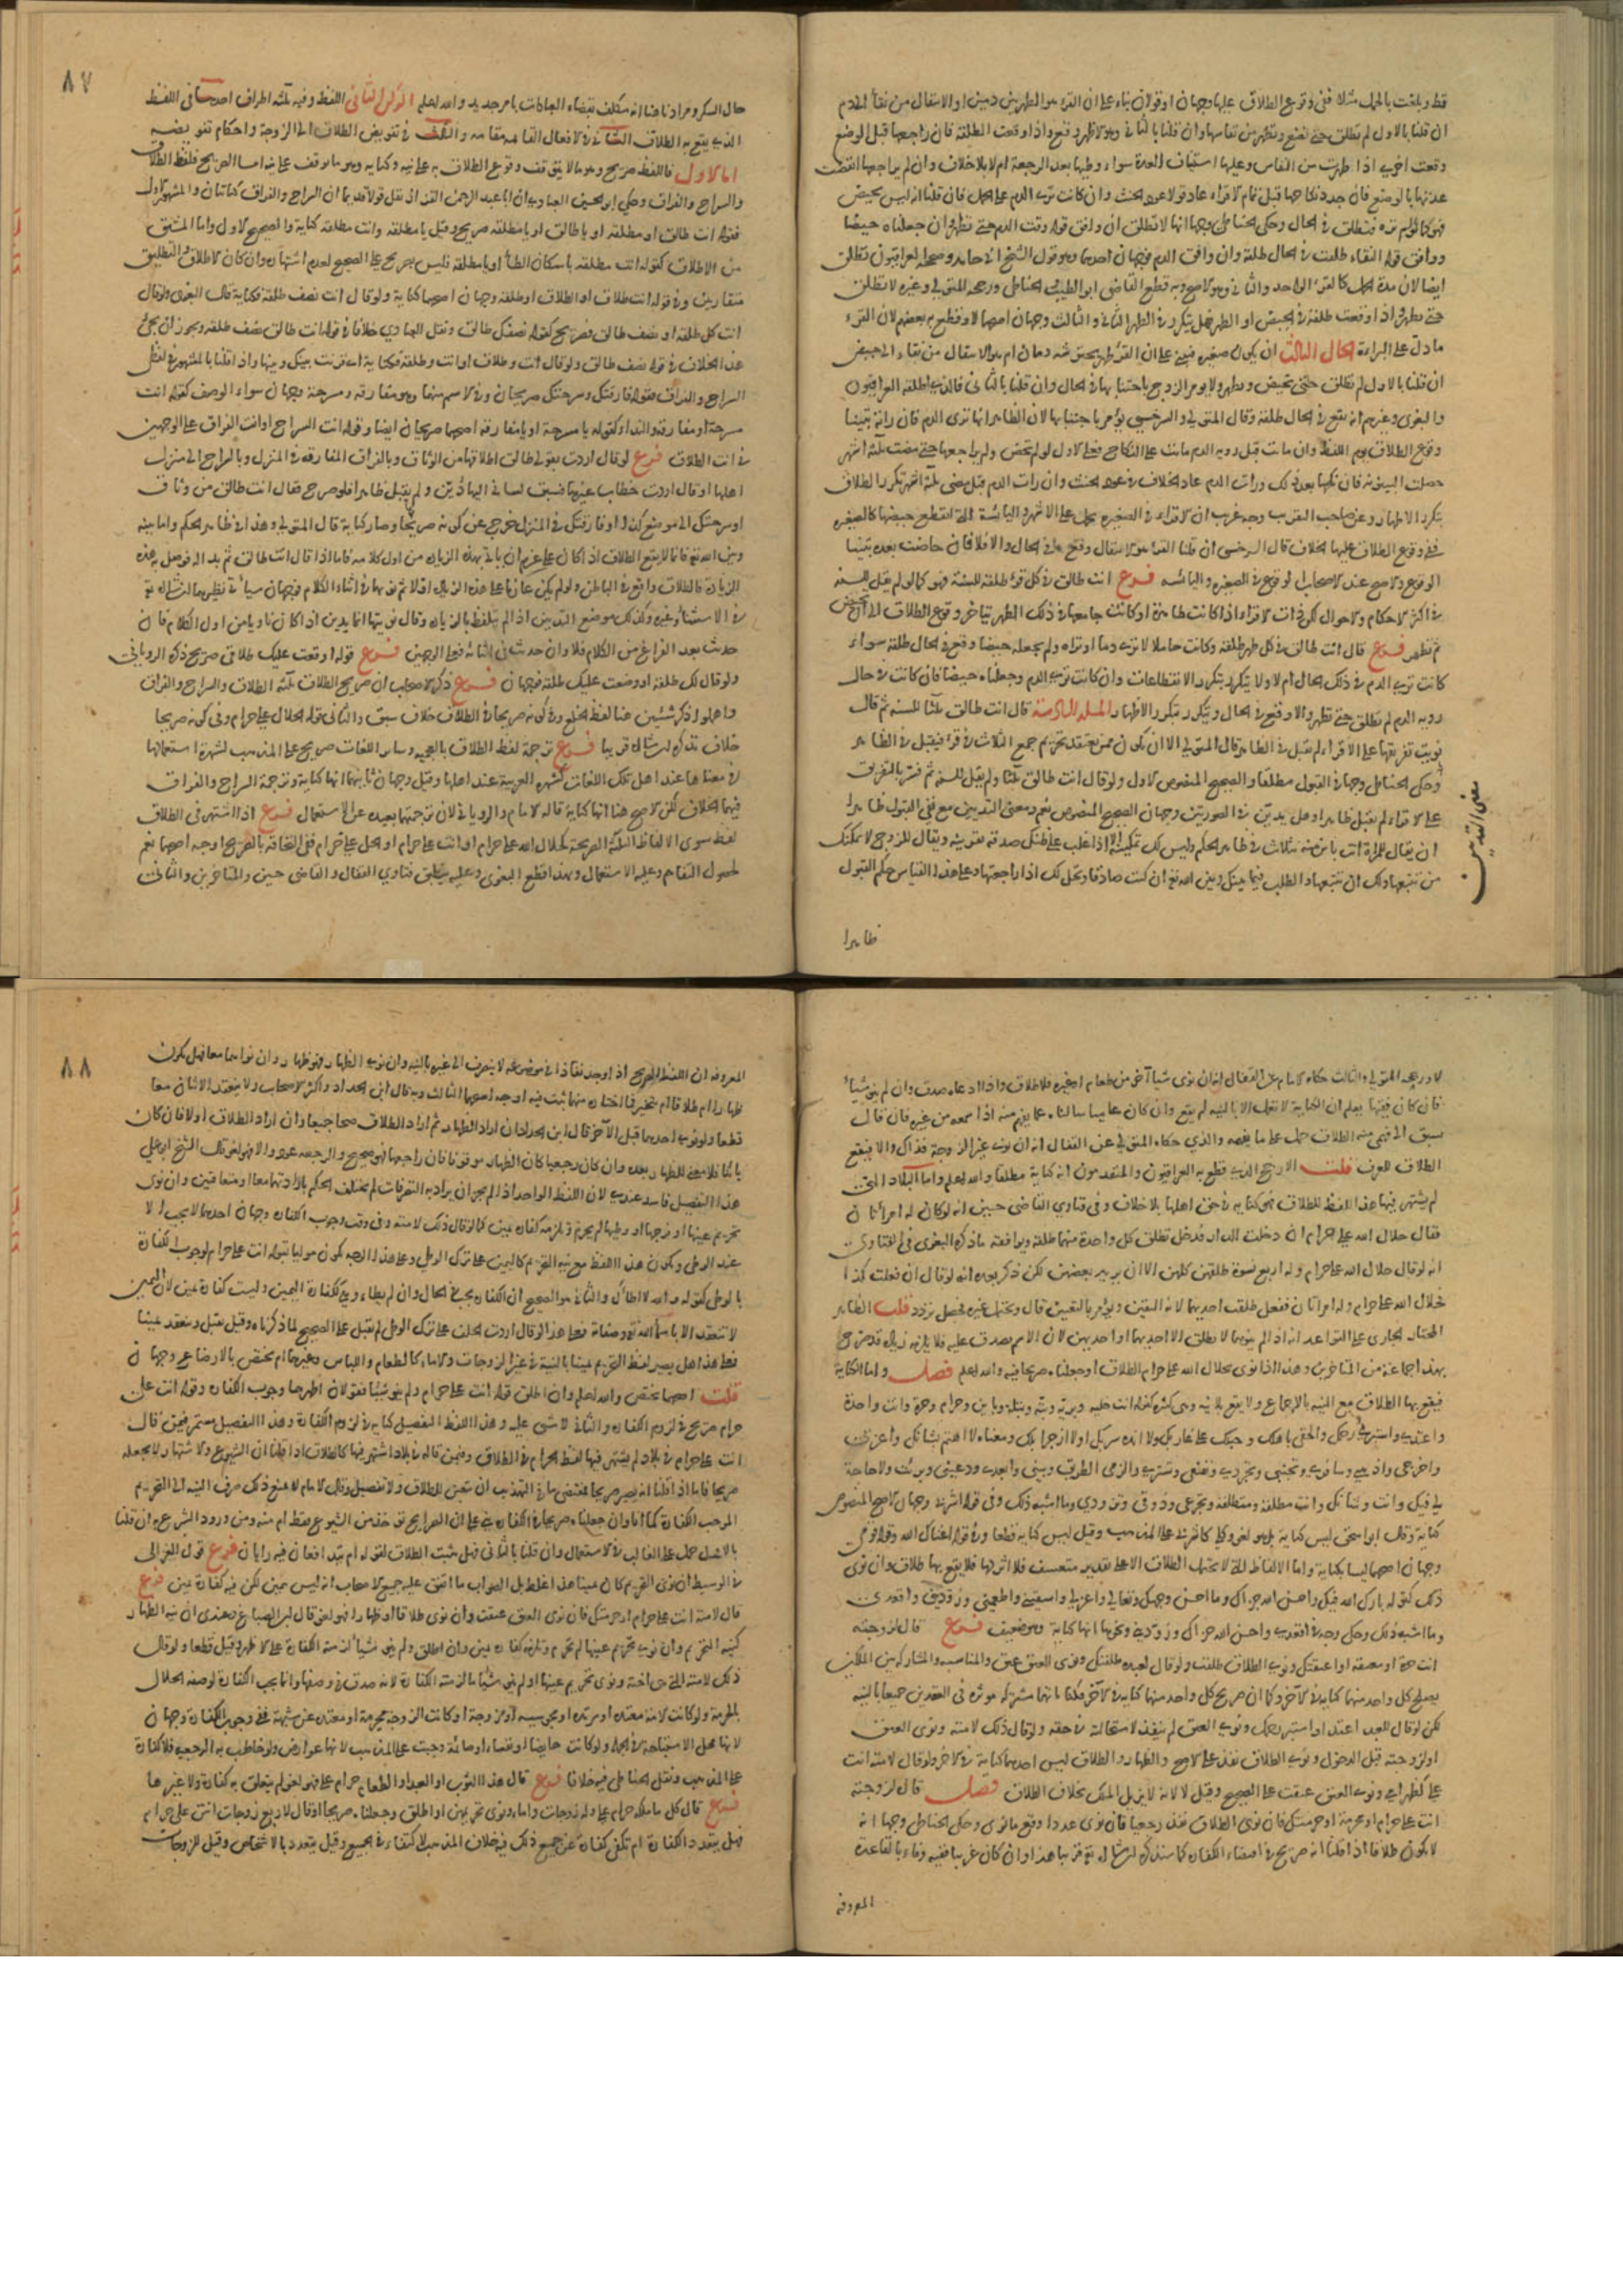 قط وبلغت بالحمل مثلا ففى وقوع الطلاق عليها وجهان او قولان بناء على ان القرء هو الطهر بين دمين او الانتقال من نقاء الى دم
ان قلنا بالاول لم تطلق حتى تضع وتطهر من نفاسها وان قلنا بالثانى وهو الاظهر وقع واذا وقعت الطلقة فان راجعها قبل الوضع
وقعت اخرى اذا طهرت من النفاس وعليها استيناف العدة سواء وطيها بعد الرجعة ام لا بلا خلاف وان لم يراجعها انقضت
عدتها بالوضع فان جدد نكاحها قبل تمام الاقراء عاد قولا عود الحنث وان كانت ترى الدم على الحمل فان قلنا انه ليس بحيض
فهو كما لو لم تره فتطلق فى الحال وحكى الحناطى وجها انها لا تطلق ان وافق قوله وقت الدم حتى تطهر وان جعلناه حيضا
ووافق قوله النقاء طلقت فى الحال طلقة وان وافق الدم فوجهان احدهما وهو قول الشيخ ابى حامد وصححه العراقيون تطلق
ايضا لان مدة الحمل كالقرء الواحد والثانى وهو الاصح وبه قطع القاضى ابو الطيب والحناطى ورجحه المتولى وغيره لا تطلق
حتى تطهر واذا وقعت طلقة فى الحيض او الطهر فهل يتكرر فى الطهر الثانى والثالث وجهان اصحهما لا وقطع به بعضهم لان القرء
ما دل على البراءة الحال الثالث ان يكون صغيرة فيبنى على ان القرء طهر محتوش بدمان ام هو الانتقال من نقاء الى حيض
ان قلنا بالاول لم تطلق حتى تحيض وتطهر ولا يومر الزوج باجتنابها فى الحال وان قلنا بالثانى فالذى اطلقه العراقيون
والبغوى وغيرهم انه يقع فى الحال طلقة وقال المتولى والسرخسى يؤمر باجتنابها لان الظاهر انها ترى الدم فان راته تبينا
وقوع الطلاق يوم اللفظ وان ماتت قبل رويه الدم ماتت على النكاح فعلى الاول لو لم تحض ولم يراجعها حتى مضت ثلثة اشهر
حصلت البينونة فان نكحها بعد ذلك ورات الدم عاد الخلاف فى عود الحنث وان رات الدم قبل مضى ثلثة اشهر تكرر الطلاق
بتكرر الاطهار وعن صاحب التقريب وجه غريب ان الاقراء فى الصغيرة يحمل على الاشهر واليائسة التى انقطع حيضها كالصغيره
ففى وقوع الطلاق عليها الخلاف قال السرخسى ان قلنا القرء هو الانتقال وقع فى الحال والا فلا فان حاضت بعده تبينا
الوقوع والاصح عند الاصحاب الوقوع فى الصغيره واليائسه فرع انت طالق فى كل قرء طلقة للسنة فهو كما لو لم يقل للسنه
فى اكثر الاحكام والاحوال لكن ذات الاقراء اذا كانت طاهرة وكانت جامعها فى ذلك الطهر يتاخر وقوع الطلاق الى ان تحيض
ثم تطهر فرع قال انت طالق فى كل طهر طلقة وكانت حاملا لا ترى دما او تراه ولم يجعله حيضا وقع فى الحال طلقة سواء
كانت ترى الدم فى ذلك الحال ام لا ولا يتكرر بتكرر الانقطاعات وان كانت ترى الدم وجعلناه حيضا فان كانت فى حال
رويه الدم لم تطلق حتى تطهر والا وقع فى الحال ويتكرر بتكرر الاطهار المسله السادسة قال انت طالق ثلثا للسنه ثم قال
نويت تفريقها على الاقراء لم يقبل فى الظاهر قال المتولى الا ان يكون ممن يعتقد تحريم جمع الثلاث فى قرء فيقبل فى الظاهر
وحكى الحناطى وجها فى القبول مطلقا والصحيح المنصوص الاول ولو قال انت طالق ثلثا ولم يقل للسنه ثم فسر بالتفريق
على الاقراء لم يقبل ظاهرا وهل يدين فى الصورتين وجهان الصحيح المنصوص نعم ومعنى التديين مع نفى القبول ظاهرا
ان يقال للمراة انت باين منه بثلاث فى ظاهر الحكم وليس لك تمكينه الا اذا غلب على ظنك صدقه بقرينه ويقال للزوج لا نمكنك
من تتبعها ولك ان تتبعها والطلب فيما بينك وبين الله تع ان كنت صادقا وتحل لك اذا راجعتها وعلى هذا القياس حكم القبول
معنى التديين
ظاهرا
٨٧
حال السكر ومرادنا هنا انه مكلف بقضاء العبادات بامر جديد والله اعلم الركن الثانى اللفظ وفيه ثلثه اطراف احدها فى اللفظ
الذى يقع به الطلاق الثانى فى الافعال القائمه مقامه والثالث فى تفويض الطلاق الى الزوجة واحكام تفويضه
اما الاول فاللفظ صريح وهو ما لا يتوقف وقوع الطلاق به على نيه وكنايه وهو ما توقف على نيه اما الصريح فلفظ الطلاق
والسراح والفراق وحكى ابو الحسين العبادى ان ابا عبد الرحمن القزاز نقل قولا قديما ان السراح والفراق كنايتان والمشهور الاول
فقوله انت طالق او مطلقه او يا طالق او يا مطلقه صريح وقيل يا مطلقه وانت مطلقه كناية والصحيح الاول واما المشتق
من الاطلاق كقوله انت مطلقه باسكان الطاء او يا مطلقة فليس بصريح على الصحيح لعدم اشتهاره وان كان الاطلاق والتطليق
متقاربين وفى قوله انت طلاق او الطلاق او طلقة وجهان اصحهما كناية ولو قال انت نصف طلقة فكناية قال البغوى ولو قال
انت كل طلقه او نصف طالق فصريح كقوله نصفك طالق ونقل العبادى خلافا فى قوله انت طالق نصف طلقه ويجوز ان يجئ
هذا الخلاف فى قوله نصف طالق ولو قال انت وطلاق او انت وطلقة فكناية اى قرنت بينك وبينها واذا قلنا بالمشهور فى لفظى
السراح والفراق فقوله فارقتك وسرحتك صريحان وفى الاسم منهما وهو مفارقه ومسرحة وجهان سواء الوصف كقوله انت
مسرحة او مفارقه والنداء كقوله يا مسرحة او يا مفارقه اصحهما صريحان ايضا وقوله انت السراح او انت الفراق على الوجهين
فى انت الطلاق فرع لو قال اردت بقولى طالق اطلاقها من الوثاق وبالفراق المفارقه فى المنزل وبالسراح الى منزل
اهلها او قال اردت خطاب غيرها فسبق لسانى اليها دين ولم يقبل ظاهرا فلو صرح فقال انت طالق من وثاق
او سرحتك الى موضع كذا او فارقتك فى المنزل خرج عن كونه صريحا وصار كناية قال المتولى وهذا فى ظاهر الحكم واما بينه
وبين الله تع فانما لا يقع الطلاق اذا كان على عزم ان ياتى بهذه الزياده من اول كلامه فاما اذا قال انت طالق ثم بدا له فوصل به هذه
الزيادة فالطلاق واقع فى الباطن ولو لم يكن عازما على هذه الزيادة اولا ثم نواها فى اثناء الكلام فوجهان سياتى نظيرهما ان شاء الله تع
فى الاستثناء وغيره وكذلك موضع التديين اذا لم يتلفظ بالزياده وقال نويتها انما يدين اذا كان ناويا من اول الكلام فان
حدث بعد الفراغ من الكلام فلا وان حدث فى اثنائه فعلى الوجهين فرع قوله اوقعت عليك طلاقى صريح ذكره الرويانى
ولو قال لك طلقة او وضعت عليك طلقه فوجهان فرع ذكر الاصحاب ان صريح الطلاق ثلثه الطلاق والسراح والفراق
واهملوا ذكر شيئين هنا لفظ الخلع وفى كونه صريحا فى الطلاق خلاف سبق والثانى قوله الحلال على حرام وفى كونه صريحا
خلاف نذكره ان شاء الله قريبا فرع ترجمة لفظ الطلاق بالعجميه وساير اللغات صريح على المذهب لشهرة استعمالها
فى معناها عند اهل تلك اللغات كشهره العربية عند اهلها وقيل وجهان ثانيهما انها كناية وترجمة السراح والفراق
فيهما الخلاف لكن الاصح هنا انها كناية قاله الامام والرويانى لان ترجمتها بعيده عن الاستعمال فرع اذا اشتهر فى الطلاق
لفظ سوى الالفاظ الثلثة الصريحة كحلال الله على حرام او انت على حرام او الحل على حرام ففى التحاقه بالصريح اوجه اصحها نعم
لحصول التفاهم وغلبه الاستعمال وبهذا قطع البغوى وعليه ينطبق فتاوى القفال والقاضى حسين والمتاخرين والثانى
لا ورجحه المتولى والثالث حكاه الامام عن القفال انه ان نوى شيا آخر من طعام او غيره فلا طلاق واذا ادعاه صدق وان لم ينو شيا
فان كان فقيها يعلم ان الكناية لا تعمل الا بالنيه لم يقع وان كان عاميا سالناه عما يفهم منه اذا سمعه من غيره فان قال
سبق الى فهمى منه الطلاق حمل على ما يفهمه والذى حكاه المتولى عن القفال انه ان نوى غير الزوجة فذاك والا فيقع
الطلاق للعرف قلت الارجح الذى قطع به العراقيون والمتقدمون انه كناية مطلقا والله اعلم واما البلاد التى
لم يشتهر فيها هذا اللفظ للطلاق فهى كنايه فى حق اهلها بلا خلاف وفى فتاوى القاضى حسين انه لو كان له امراتان
فقال حلال الله على حرام ان دخلت الدار فدخل تطلق كل واحدة منهما طلقة ويوافقه ما ذكره البغوى فى الفتاوى
انه لو قال حلال الله على حرام وله اربع نسوة طلقن كلهن الا ان يريد بعضهن لكن ذكر بعده انه لو قال ان فعلت كذا
فحلال الله على حرام وله امراتان ففعل طلقت احديهما لانه اليقين ويؤمر بالتعيين قال ويحتمل غيره فحصل تردد قلت الظاهر
المختار الجارى على القواعد انه اذا لم ينوهما لا يطلق الا احديهما او احديهن لان الاسم يصدق عليه فلا يلزمه زيادة وقد صرح
بهذا جماعة من المتاخرين وهذا اذا نوى بحلال الله على حرام الطلاق او جعلناه صريحا فيه والله اعلم فصل واما الكناية
فيقع بها الطلاق مع النيه بالاجماع ولا يقع بلا نيه وهى كثيره كقوله انت خليه وبريه وبته وبتله وباين وحرام وحرة وانت واحدة
واعتدى واستبرئى رحمك والحقى باهلك وحبلك على غاربك ولا انده سربك اى لا ازجر ابلك ومعناه لا اهتم بشانك واعزبى
واخرجى واذهبى وسافرى وتجنبى وتجردى وتقنعى وتسترى والزمى الطريق وبينى وابعدى ودعينى وبرئت ولا حاجة
لى فيك وانت وشانك وانت مطلقة ومنطلقة وتجرعى وذوقى وتزودى وما اشبه ذلك وفى قوله اشربى وجهان الاصح المنصوص
كناية وقال ابو اسحق ليس كناية بل هو لغو وكلى كاشربى على المذهب وقيل ليس كنايه قطعا وفى قوله اغناك الله وقوله قومى
وجهان اصحهما ليسا بكناية واما الالفاظ التى لا تحتمل الطلاق الا على تقدير متعسف فلا اثر لها فلا يقع بها طلاق وان نوى
ذلك كقوله بارك الله فيك واحسن الله جزاك وما احسن وجهك وتعالى واغزلى واسقينى واطعمينى وزودينى واقعدى
وما اشبه ذلك وحكى وجه فى اقعدى واحسن الله جزاك وزودينى ونحوها انها كناية وهو ضعيف فرع قال لزوجته
انت حرة او معتقه او اعتقتك ونوى الطلاق طلقت ولو قال لعبده طلقتك ونوى العتق عتق وللمناسبه والمشاركه بين الملكين
يصلح كل واحد منهما كنايه فى الآخر وكما ان صريح كل واحد منهما كنايه فى الآخر فكناياتهما مشتركه موثره فى العقدين جميعا بالنيه
لكن لو قال للعبد اعتد او استبر رحمك ونوى العتق لم ينفذ لاستحالته فى حقه ولو قال ذلك لامته ونوى العتق
او لزوجته قبل الدخول ونوى الطلاق نفذ على الاصح والظهار والطلاق ليس احدهما كناية فى الاخر ولو قال لامته انت
على كظهر امى ونوى العتق عتقت على الصحيح وقيل لا لانه لا يزيل الملك بخلاف الطلاق فصل قال لزوجته
انت على حرام او محرمة او حرمتك فان نوى الطلاق نفذ رجعيا فان نوى عددا وقع ما نوى وحكى الحناطى وجها انه
لا يكون طلاقا اذا قلنا انه صريح فى اقتضاء الكفاره كما سنذكره ان شاء الله تع قريبا هذا وان كان غريبا ففيه وفاء بالقاعدة
المعروفه
٨٨
المعروفه ان اللفظ الصريح اذا وجد نفاذا فى موضوعه لا ينصرف الى غيره بالنيه وان نوى الظهار فهو ظهار وان نواهما معا فهل يكون
ظهارا ام طلاقا ام يتخير فما اختاره منهما ثبت فيه اوجه اصحها الثالث وبه قال ابن الحداد واكثر الاصحاب ولا ينعقد الاثنان معا
قطعا ولو نوى احدهما قبل الآخر قال ابن الحداد ان اراد الظهار ثم اراد الطلاق صحا جميعا وان اراد الطلاق اولا فان كان
باينا فلا معنى للظهار بعده وان كان رجعيا كان الظهار موقوفا فان راجعها فهو صحيح والرجعه عود والا فهو لغو قال الشيخ ابو على
هذا التفصيل فاسد عندى لان اللفظ الواحد اذا لم يجز ان يراد به التصرفات لم يختلف الحكم بارادتهما معا او متعاقبين وان نوى
تحريم عينها او فرجها او وطيها لم يحرم ويلزمه كفارة يمين كما لو قال ذلك لامته وفى وقت وجوب الكفاره وجهان احدهما لا يجب الا
عند الوطى ويكون هذا اللفظ مع نيه التحريم كاليمين على ترك الوطى وعلى هذا الوجه يكون موليا بقوله انت على حرام لوجوب الكفارة
بالوطى كقوله والله لا اطاك والثانى وهو الصحيح ان الكفاره يجب فى الحال وان لم يطاء وهى ككفارة اليمين وليست كفارة يمين لان اليمين
لا تنعقد الا باسماء الله تع وصفاته فعلى هذا لو قال اردت الحلف على ترك الوطى لم يقبل على الصحيح لما ذكرناه وقيل يقبل وينعقد يمينا
فعلى هذا هل يصير لفظ التحريم يمينا بالنية فى غير الزوجات والاماء كالطعام واللباس وغيرهما ام يختص بالابضاع وجهان
قلت اصحهما يختص والله اعلم وان اطلق قوله انت على حرام ولم ينو شيئا فقولان اظهرهما وجوب الكفاره وقوله انت على
حرام صريح فى لزوم الكفاره والثانى لا شى عليه وهذا اللفظ كنايه فى لزوم الكفارة وهذا التفصيل مستمر فيمن قال
انت على حرام فى بلاد لم يشتهر فيها لفظ الحرام فى الطلاق وفيمن قاله فى بلاد اشتهر فيها كالطلاق اذا قلنا ان الشيوع والاشتهار لا يجعله
صريحا فاما اذا قلنا انه يصير صريحا فمقتضى ما فى التهذيب انه يتعين للطلاق ولا تفصيل وقال الامام لا يمنع ذلك صرف النيه الى التحريم
الموجب للكفارة كما انا وان جعلناه صريحا فى الكفاره بنى على ان الصرايح توخذ من الشيوع فقط ام منه ومن ورود الشرع به ان قلنا
بالاول حمل على الغالب فى الاستعمال وان قلنا بالثانى فهل يثبت الطلاق لقوته ام يتدافعان فيه رايان فرع قول الغزالى
فى الوسيط ان نوى التحريم كان يمينا هذا غلط بل الصواب ما اتفق عليه جميع الاصحاب انه ليس بيمين لكن فيه كفارة يمين فرع
قال لامته انت على حرام او حرمتك فان نوى العتق عتقت وان نوى طلاقا او ظهارا فهو لغو قال ابن الصباغ وعندى ان نيه الظهار
كنيه التحريم وان نوى تحريم عينها لم تحرم وتلزمه كفارة يمين وان اطلق ولم ينو شيئا لزمته الكفارة على الاظهر وقيل قطعا ولو قال
ذلك لامته التى هى اخته ونوى تحريم عينها او لم ينو شيئا لم تلزمه الكفارة لانه صدق فى وصفها وانما يجب الكفارة لوصفه الحلال
بالحرمة ولو كانت الامة معتده او مرتده او مجوسيه او مزوجة او كانت الزوجة محرمة او معتده عن شبهة ففى وجوب الكفارة وجهان
لانها محل الاستباحة فى الجملة ولو كانت حايضا او نفساء او صائمة وجبت على المذهب لانها عوارض ولو خاطب به الرجعيه فلا كفارة
على المذهب ونقل الحناطى فيه خلافا فرع قال هذا الثوب او العبد او الطعام حرام على فهو لغو لم يتعلق به كفارة ولا غيرها
فرع قال كل ما املكه حرام على وله زوجات واماء ونوى تحريمهن او اطلق وجعلناه صريحا او قال لاربع زوجات انتن على حرام
فهل يتعدد الكفارة ام تكفى كفارة عن جميع ذلك فيه خلاف المذهب الاكتفاء فى الجميع وقيل يتعدد بالاشخاص وقيل للزوجات